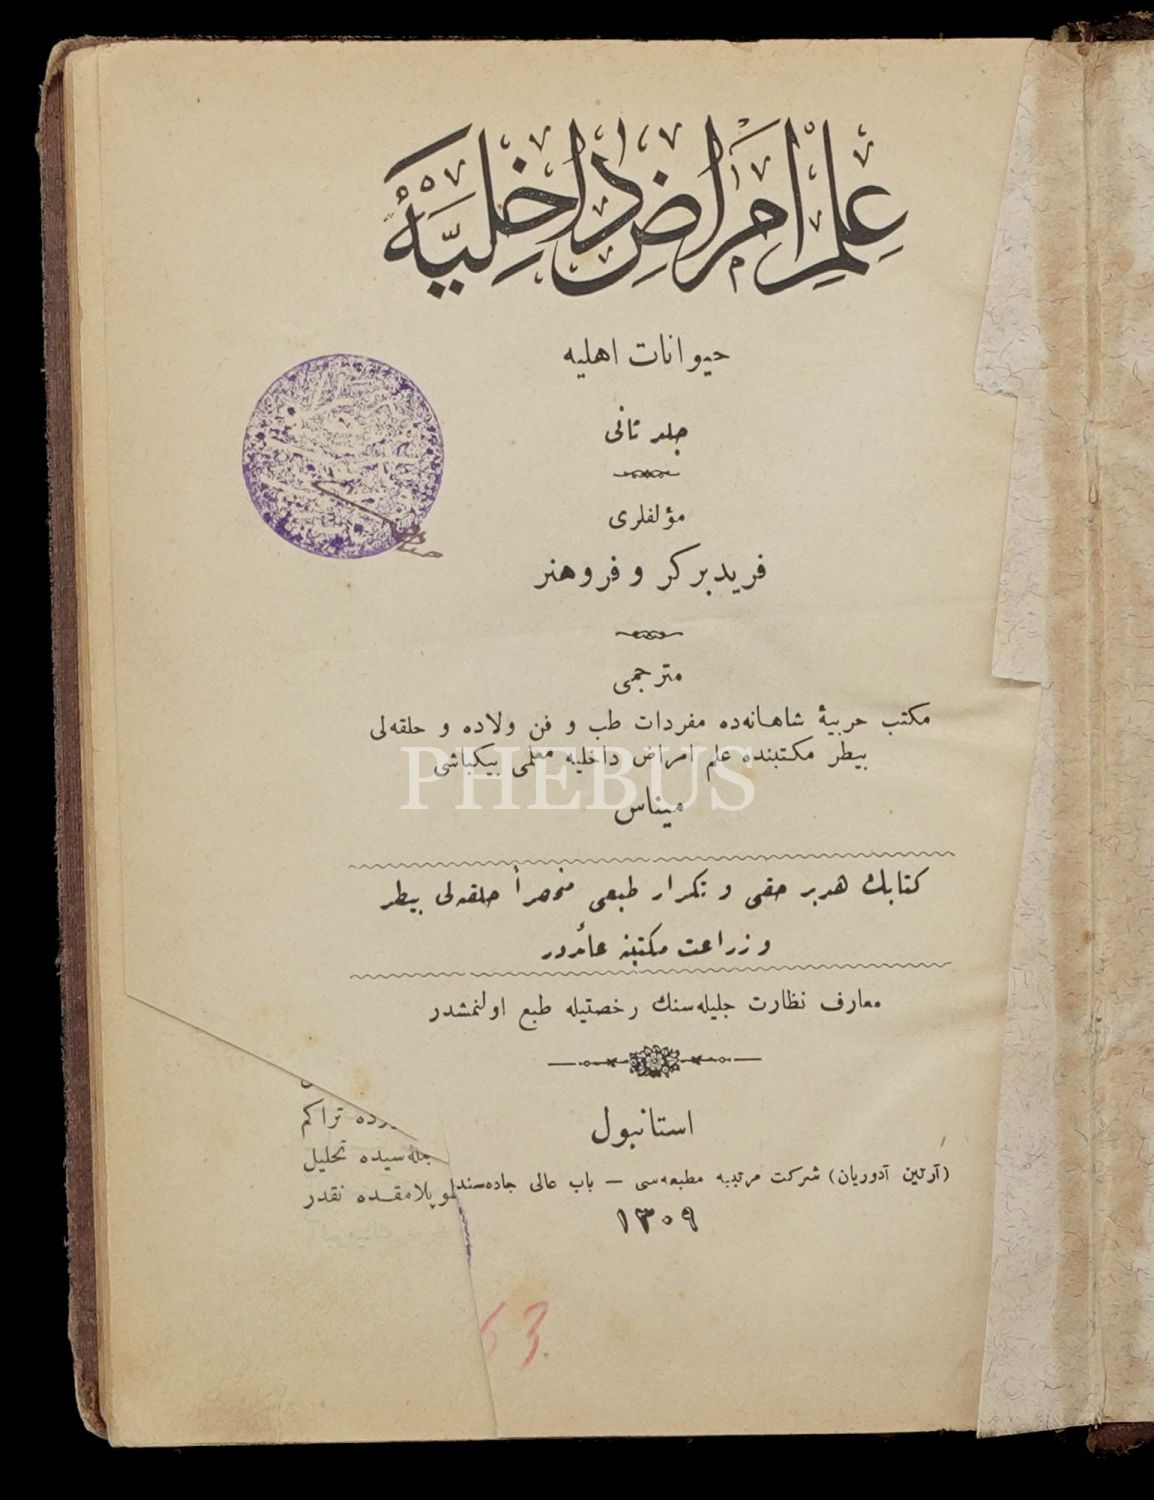 علم امراض داخلیهٔ
حیوانات اهلیه
جلد ثانی
مؤلفلری
فریدبرکر و فروهنر
مترجمی
مکتب حربیهٔ شاهانه‌ده مفردات طب و فن ولاده و حلقه‌لی
بیطر مکتبنده علم امراض داخلیه معلمی بیکباشی
PHEBUS
میناس
کتابك هر بر حقی و تکرار طبعی منحصراً حلقه‌لی بیطر
و زراعت مکتبنه عائددر
معارف نظارت جلیله‌سنك رخصتیله طبع اولنمشدر
استانبول
(آرتین آدوریان) شرکت مرتبیه مطبعه‌سی — باب عالی جاده‌سند
۱۳۰۹
تراکم
جله‌سیده تحلیل
پلامقده نقدر
53